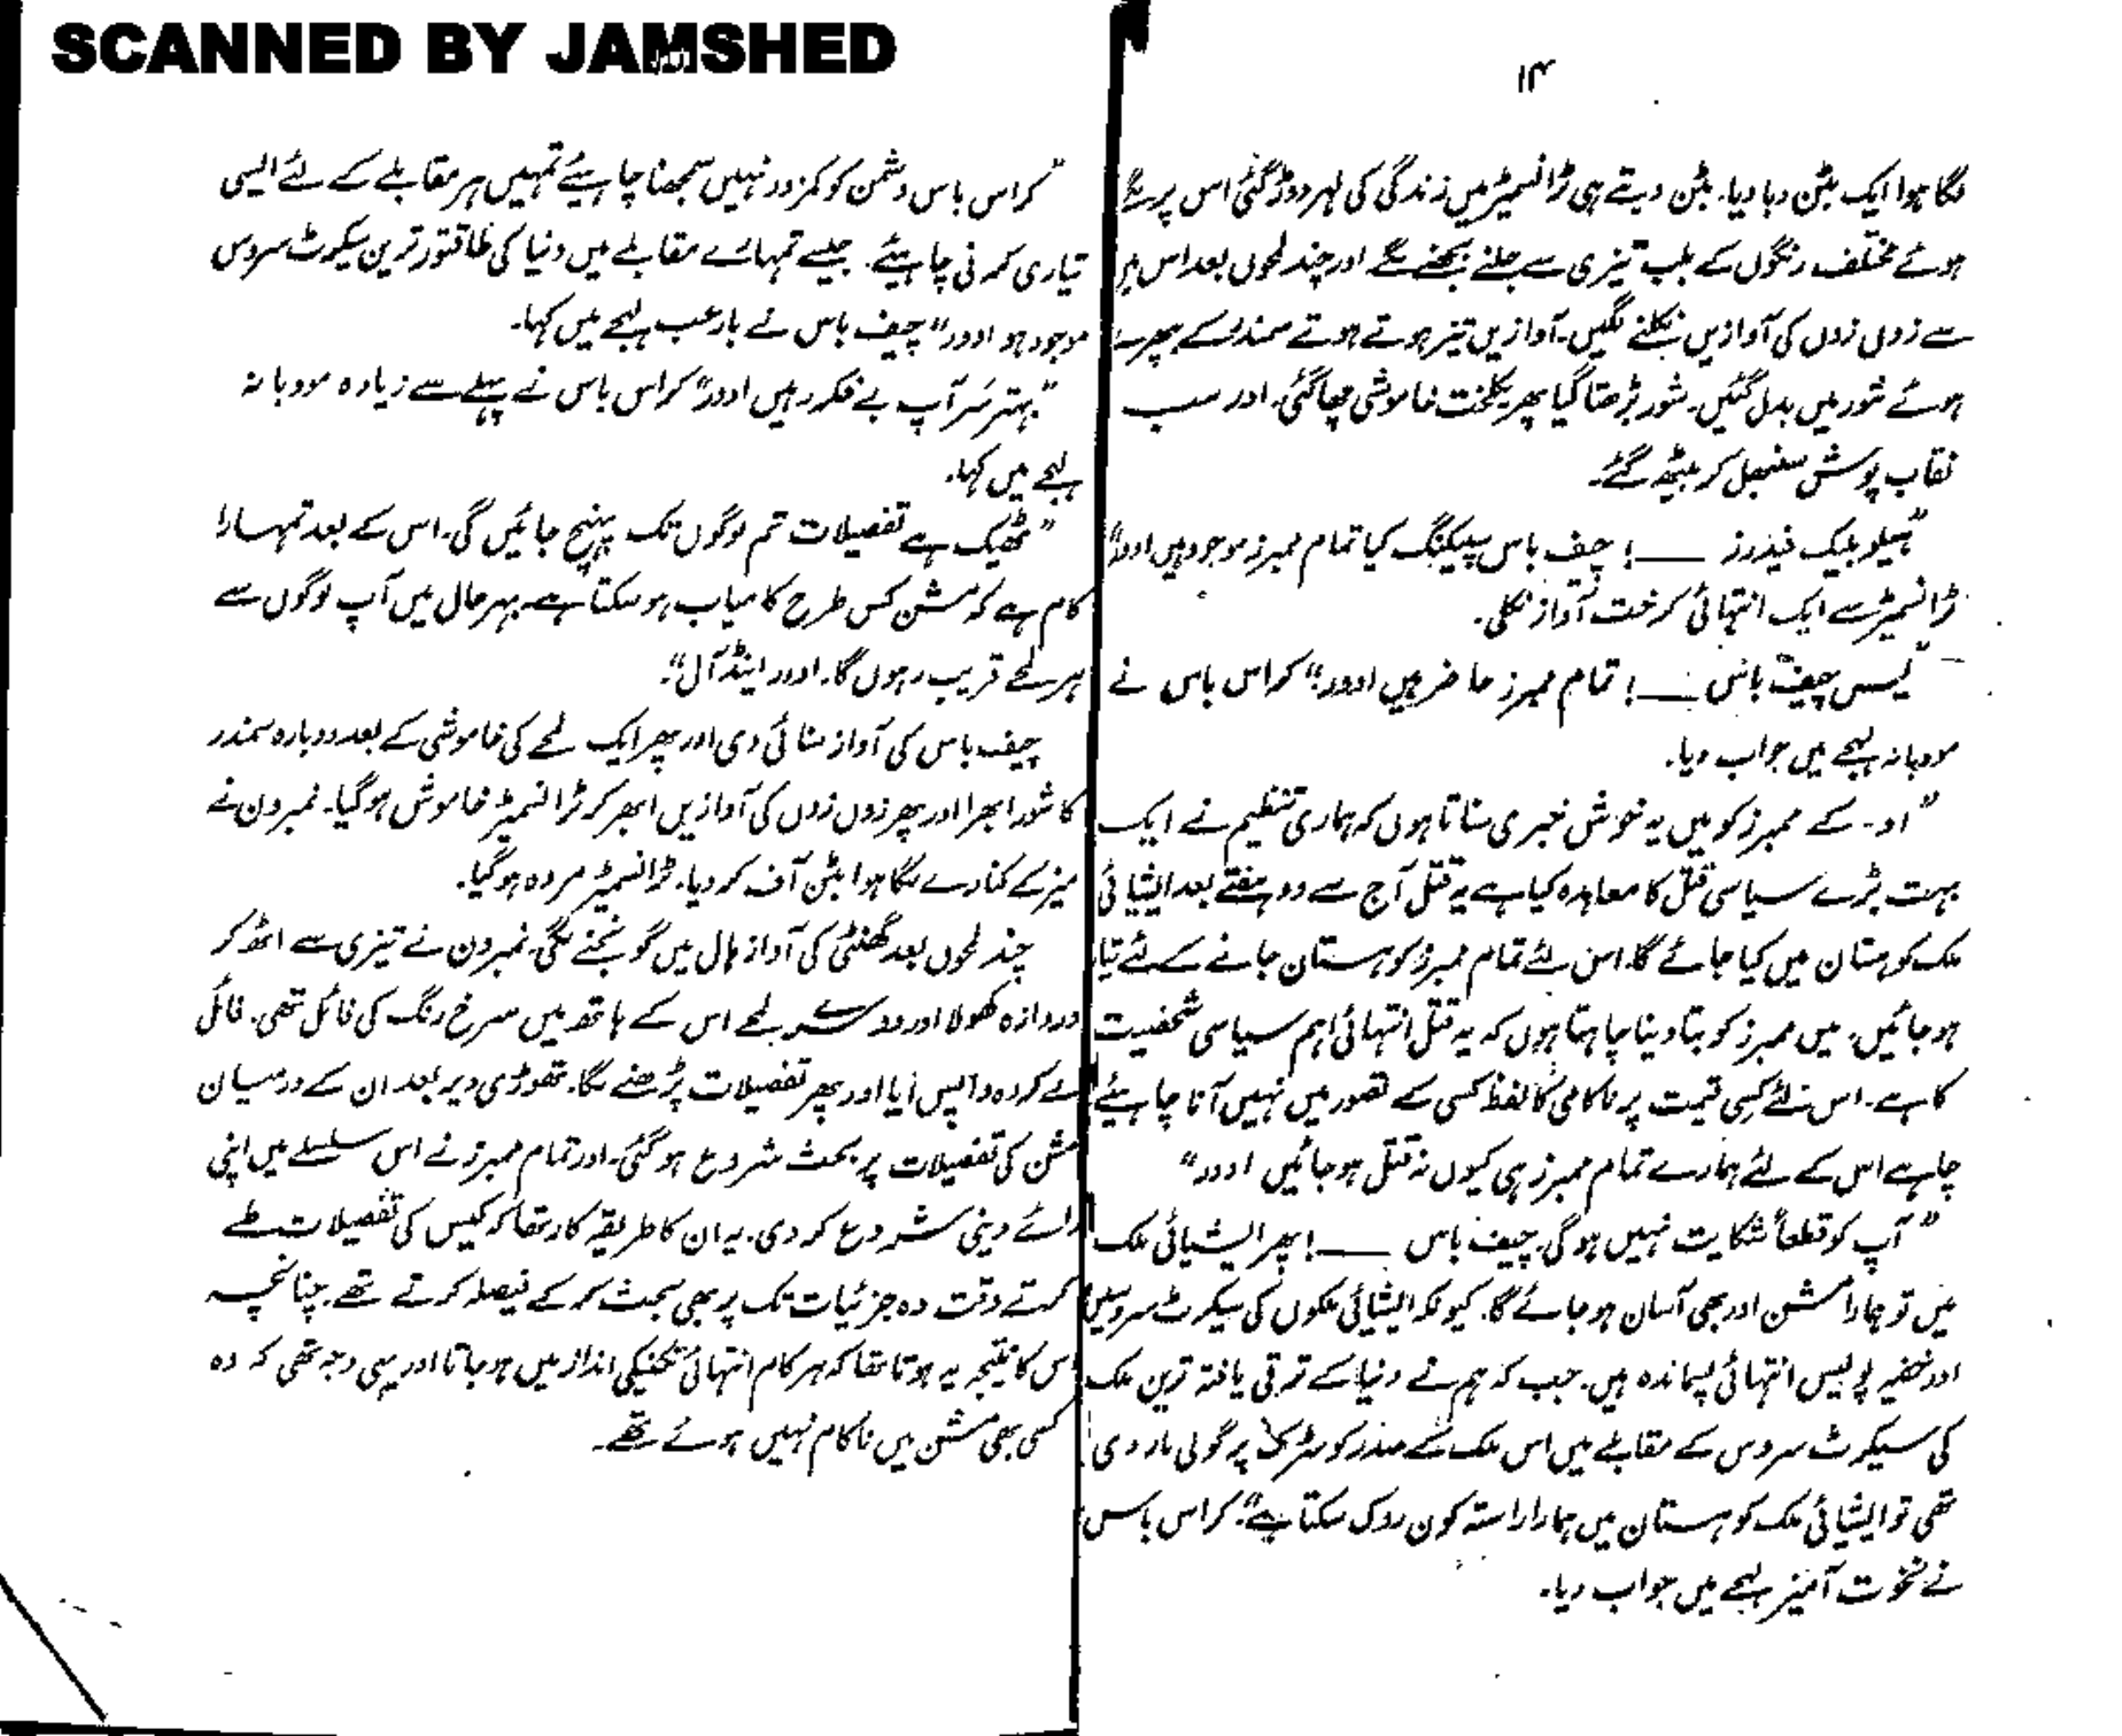 SCANNED BY JAMSHED
۱۴
لگا ہوا ایک بٹن دبا دیا۔ بٹن دبتے ہی ٹرانسمیٹر میں زندگی کی لہر دوڑ گئی اس پر لگے
ہوئے مختلف رنگوں کے بلب تیزی سے جلنے بجھنے لگے اور چند لمحوں بعد اس میں
سے زوں زوں کی آوازیں نکلنے لگیں۔ آوازیں تیز ہوتے ہوتے سمندر کے بپھرے
ہوئے شور میں بدل گئیں۔ شور بڑھتا گیا پھر یکلخت خاموشی چھا گئی۔ اور سب
نقاب پوش سنبھل کر بیٹھ گئے۔
"ہیلو بلیک فیدرز ——! چیف باس سپیکنگ کیا تمام ممبرز موجود ہیں اوور"
ٹرانسمیٹر سے ایک انتہائی کرخت آواز نکلی۔
"یس چیف باس ——! تمام ممبرز حاضر ہیں اوور" کراس باس نے
مودبانہ لہجے میں جواب دیا۔
"او۔ کے ممبرز کو میں یہ خوش خبری سناتا ہوں کہ ہماری تنظیم نے ایک
بہت بڑے سیاسی قتل کا معاہدہ کیا ہے یہ قتل آج سے دو ہفتے بعد ایشیائی
ملک کوہستان میں کیا جائے گا۔ اس لئے تمام ممبرز کوہستان جانے کے لئے تیار
ہو جائیں۔ میں ممبرز کو بتا دینا چاہتا ہوں کہ یہ قتل انتہائی اہم سیاسی شخصیت
کا ہے۔ اس لئے کسی قیمت پر ناکامی کا لفظ کسی کے تصور میں نہیں آنا چاہیئے
چاہے اس کے لئے ہمارے تمام ممبرز ہی کیوں نہ قتل ہو جائیں اوور"
"آپ کو قطعاً شکایت نہیں ہو گی۔ چیف باس ——! پھر ایشیائی ملک
میں تو ہمارا مشن اور بھی آسان ہو جائے گا۔ کیونکہ ایشیائی ملکوں کی سیکرٹ سروسیں
اور خفیہ پولیس انتہائی پسماندہ ہیں۔ جب کہ ہم نے دنیا کے ترقی یافتہ ترین ملک
کی سیکرٹ سروس کے مقابلے میں اس ملک کے صدر کو سڑک پر گولی مار دی
تھی تو ایشیائی ملک کوہستان میں ہمارا راستہ کون روک سکتا ہے"۔ کراس باس
نے نخوت آمیز لہجے میں جواب دیا۔
"کراس باس دشمن کو کمزور نہیں سمجھنا چاہیئے تمہیں ہر مقابلے کے لئے ایسی
تیاری کرنی چاہیئے۔ جیسے تمہارے مقابلے میں دنیا کی طاقتور ترین سیکرٹ سروس
موجود ہو اوور" چیف باس نے بارعب لہجے میں کہا۔
"بہتر سر آپ بے فکر رہیں اوور" کراس باس نے پہلے سے زیادہ مودبانہ
لہجے میں کہا۔
"ٹھیک ہے تفصیلات تم لوگوں تک پہنچ جائیں گی۔ اس کے بعد تمہارا
کام ہے کہ مشن کس طرح کامیاب ہو سکتا ہے۔ بہرحال میں آپ لوگوں سے
ہر لمحے قریب رہوں گا۔ اوور اینڈ آل"۔
چیف باس کی آواز سنائی دی اور پھر ایک لمحے کی خاموشی کے بعد دوبارہ سمندر
کا شور ابھرا اور پھر زوں زوں کی آوازیں ابھر کر ٹرانسمیٹر خاموش ہو گیا۔ نمبرون نے
میز کے کنارے لگا ہوا بٹن آف کر دیا۔ ٹرانسمیٹر مردہ ہو گیا۔
چند لمحوں بعد گھنٹی کی آواز ہال میں گونجنے لگی۔ نمبرون نے تیزی سے اٹھ کر
دروازہ کھولا اور دوسرے لمحے اس کے ہاتھ میں سرخ رنگ کی فائل تھی۔ فائل
لے کر وہ واپس آیا اور پھر تفصیلات پڑھنے لگا۔ تھوڑی دیر بعد ان کے درمیان
مشن کی تفصیلات پر بحث شروع ہو گئی۔ اور تمام ممبرز نے اس سلسلے میں اپنی
رائے دینی شروع کر دی۔ یہ ان کا طریقہ کار تھا کہ کیس کی تفصیلات طے
کرتے وقت وہ جزئیات تک پر بھی بحث کر کے فیصلہ کرتے تھے۔ چنانچہ
اس کا نتیجہ یہ ہوتا تھا کہ ہر کام انتہائی تکنیکی انداز میں ہو جاتا اور یہی وجہ تھی کہ وہ
کسی بھی مشن میں ناکام نہیں ہوئے تھے۔